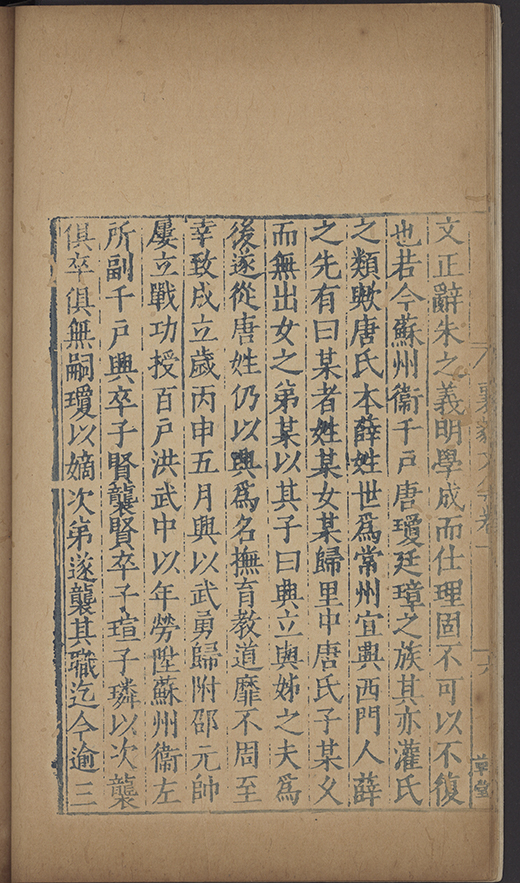 文正辭朱之義明學成而仕理固不可以不復
也若今蘇州衞千戸唐瓊廷璋之族其亦灌氏
之類歟唐氏本薛姓世爲常州宜興西門人薛
之先有曰某者姓某女某歸里中唐氏子某父
而無出女之弟某以其子曰興立與姊之夫爲
後遂從唐姓仍以興爲名撫育教道靡不周至
幸致成立歲丙申五月興以武勇歸附邵元帥
屢立戰功授百戸洪武中以年勞陞蘇州衞左
所副千戸興卒子賢襲賢卒子瑄子璘以次襲
俱卒俱無嗣瓊以嫡次弟遂襲其職迄今逾三